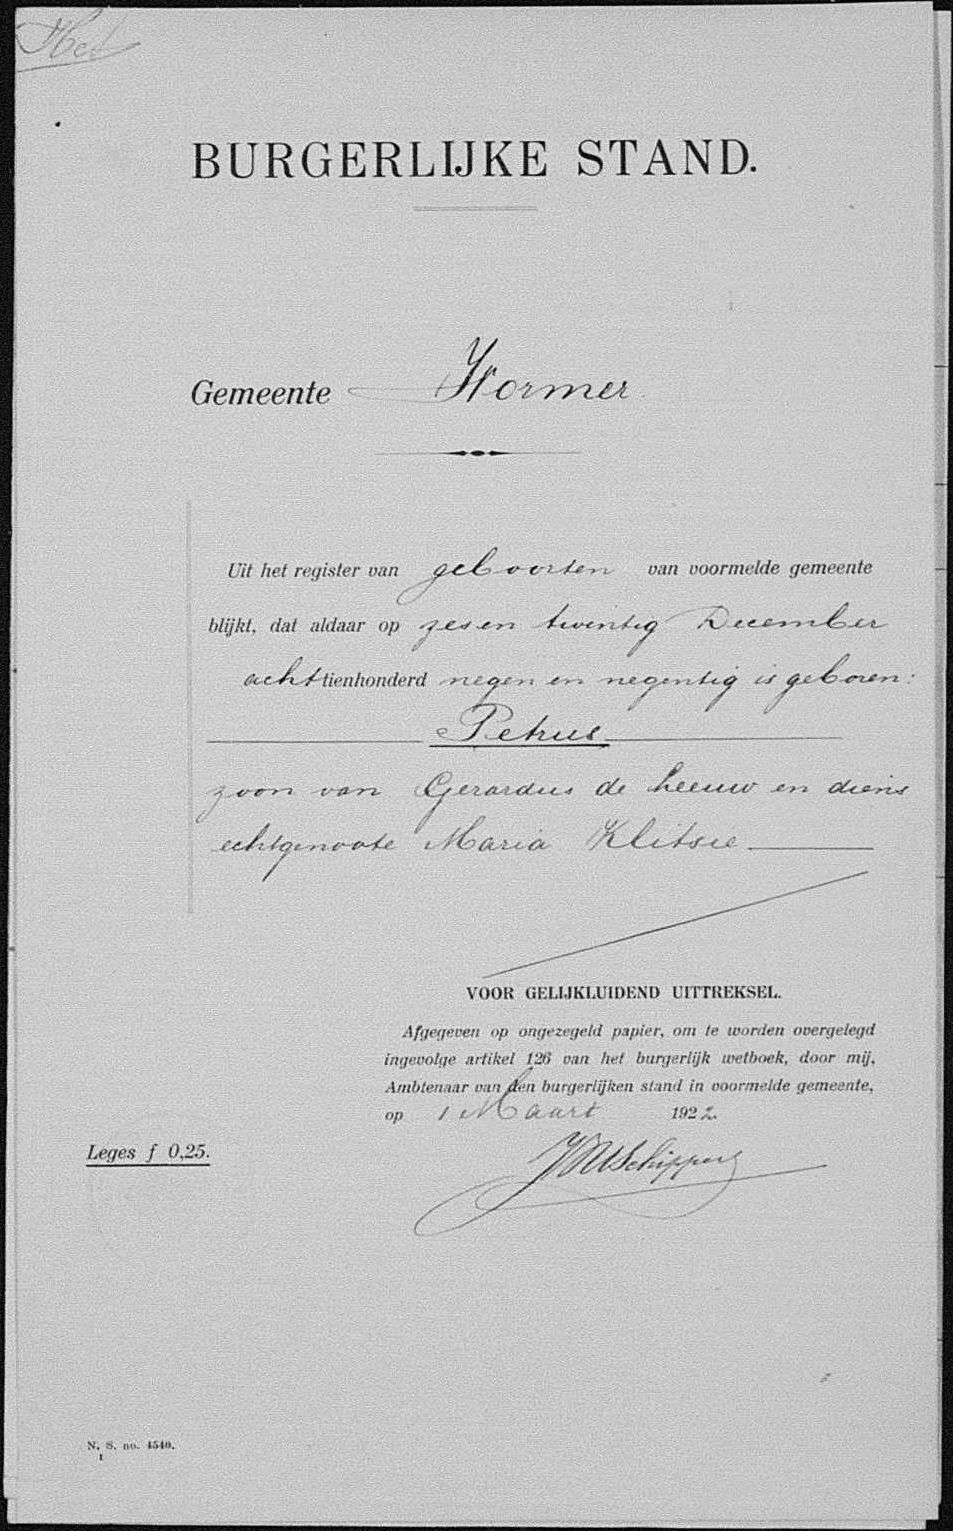 BURGERLIJKE STAND.
Gemeente Wormer
Uit het register van geboorten van voormelde gemeente
blijkt, dat aldaar op zesen twintig December
achttienhonderd negen en negentig is geboren:
Petrus
zoon van Gerardus de Leeuw en diens
echtgenoote Maria Klitsie
VOOR GELIJKLUIDEND UITTREKSEL.
Afgegeven op ongezegeld papier, om te worden overgelegd
ingevolge artikel 126 van het burgerlijk wetboek, door mij,
Ambtenaar van den burgerlijken stand in voormelde gemeente,
op 1 Maart 1922.
Leges f 0,25.
Schipper
N. S. no. 4540.
1